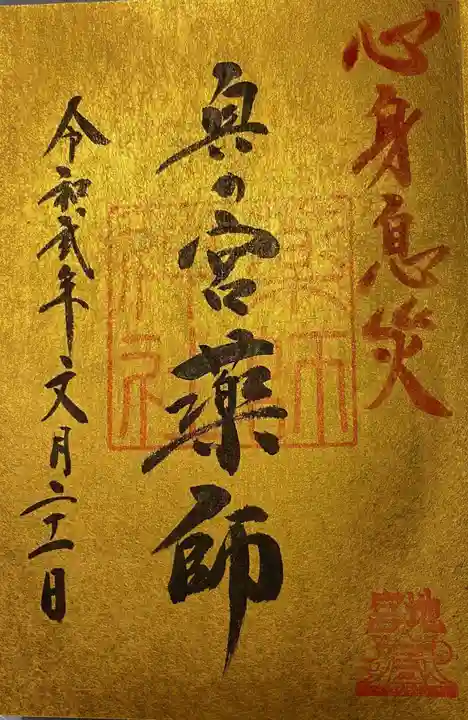 心身息災
奥の宮薬師
令和弐年文月二十一日
地蔵